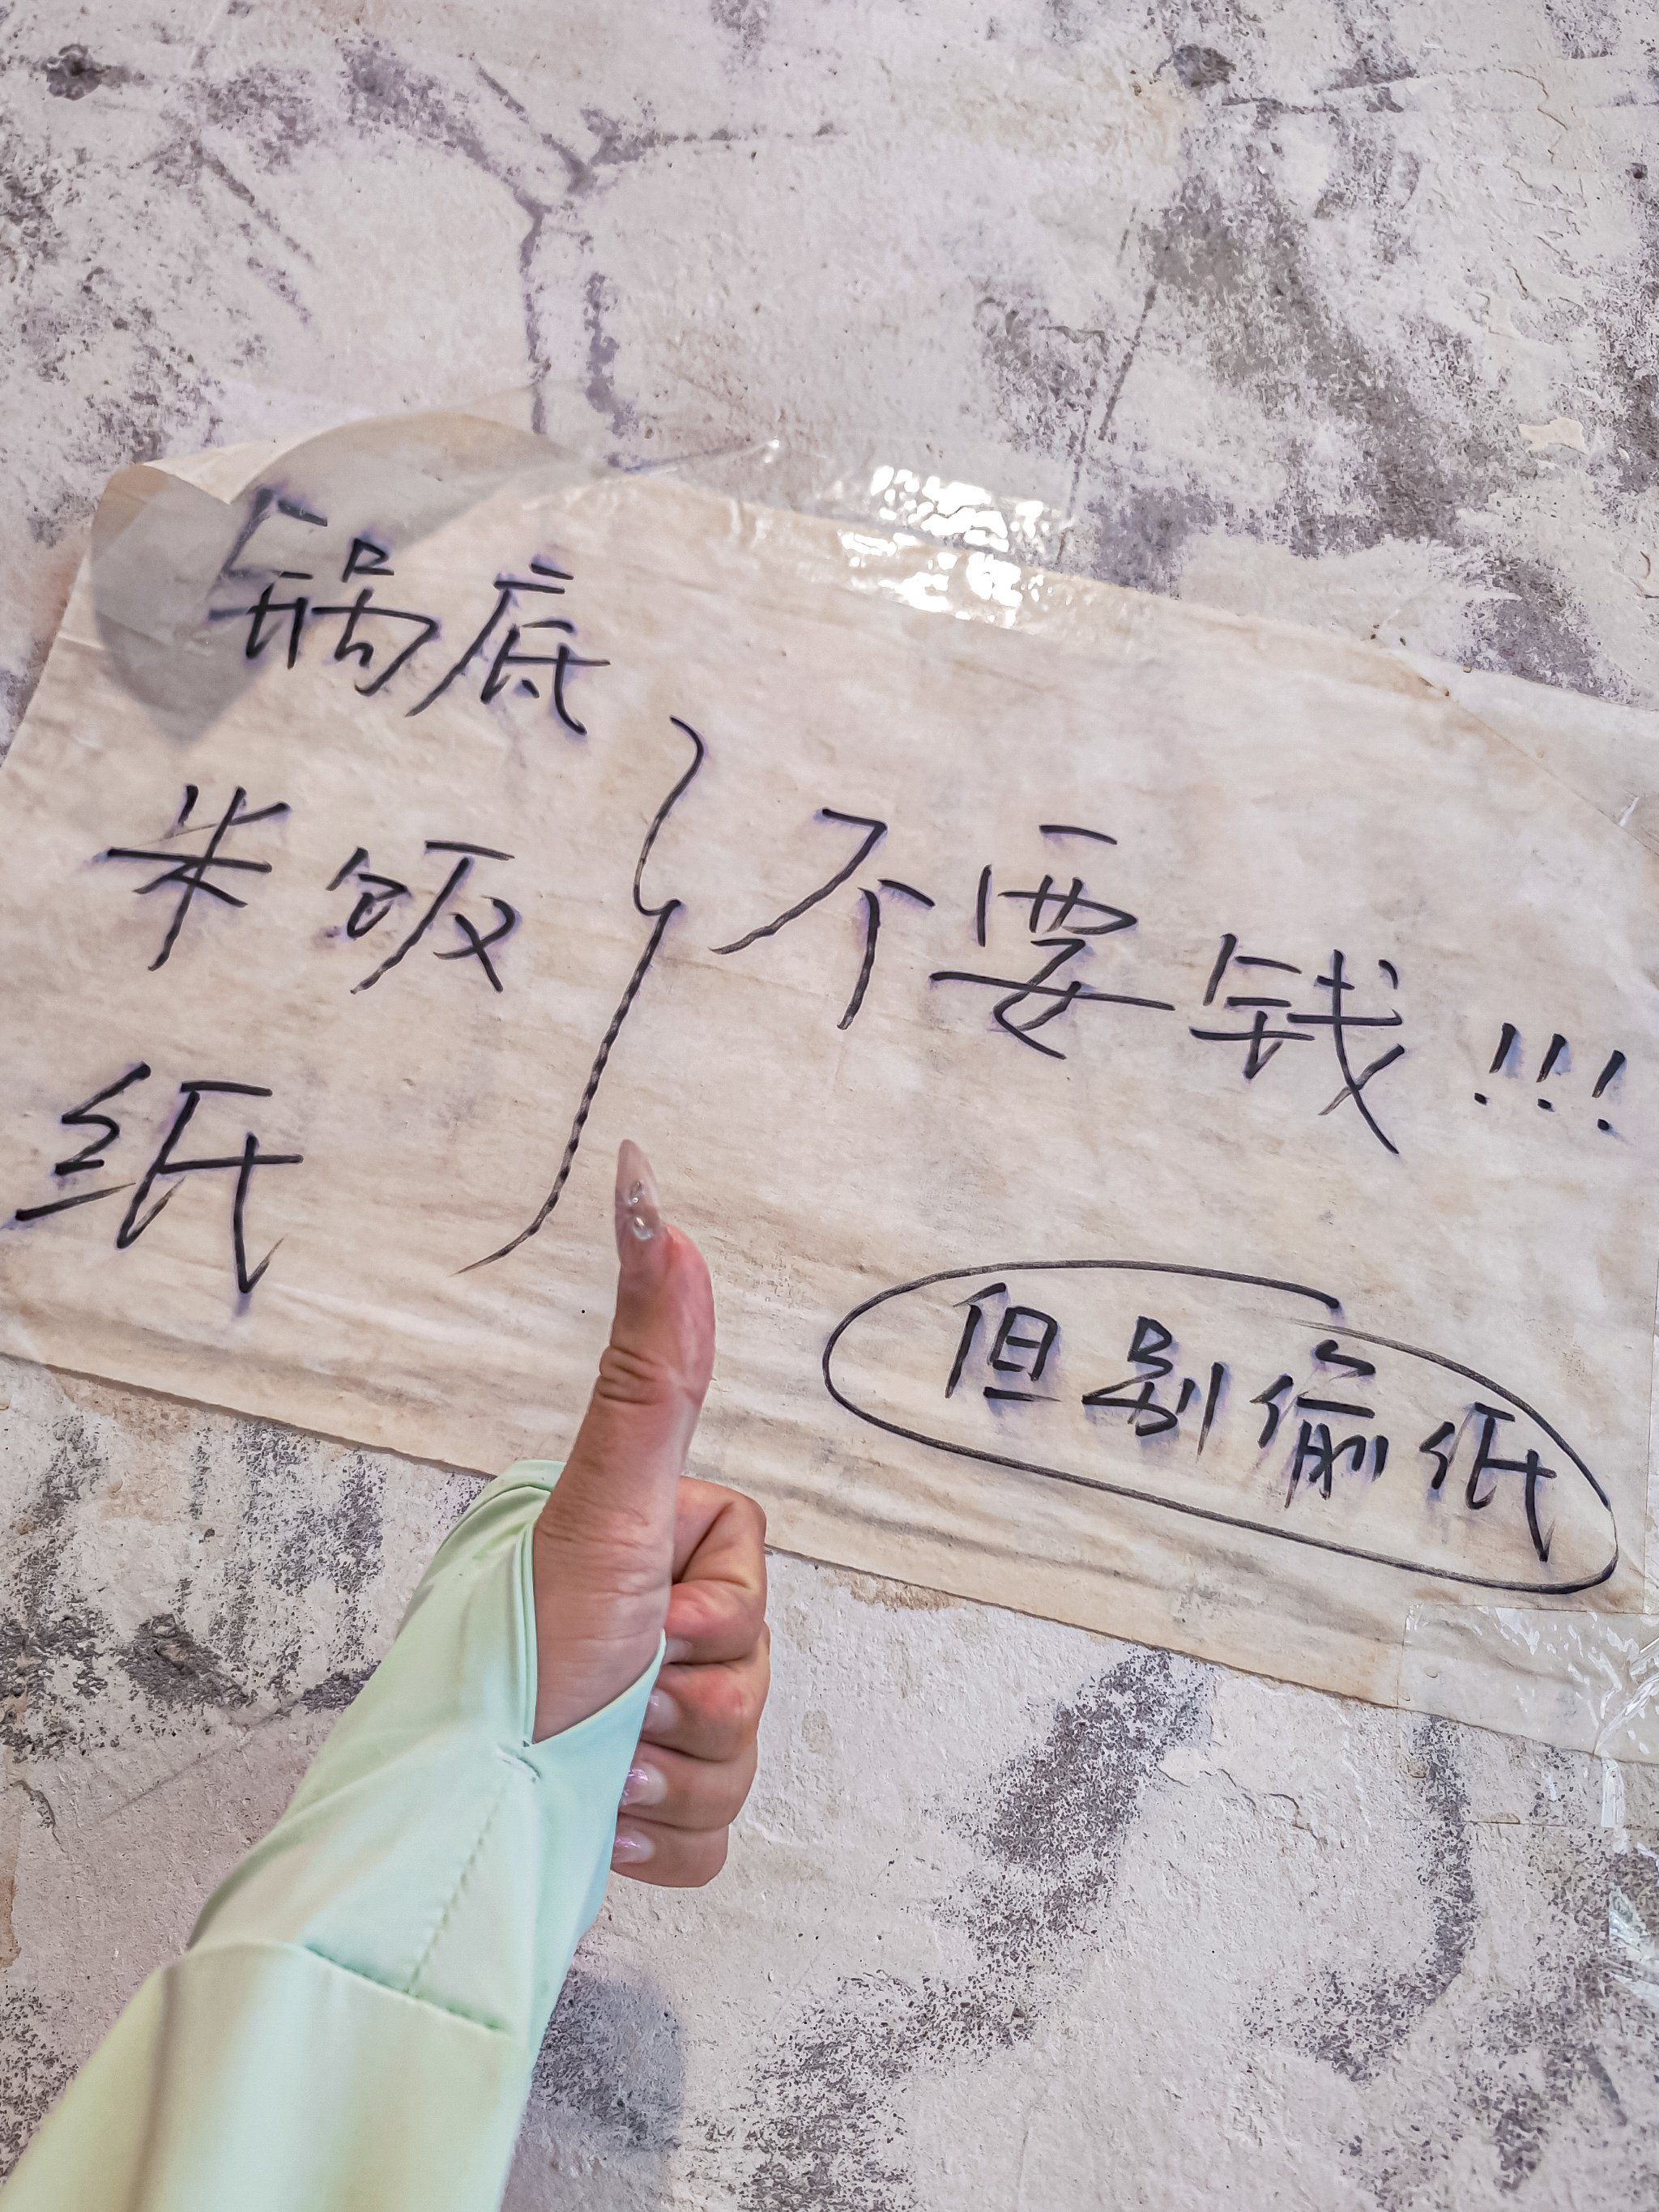 锅底
米饭
纸
不要钱!!!
但别偷纸